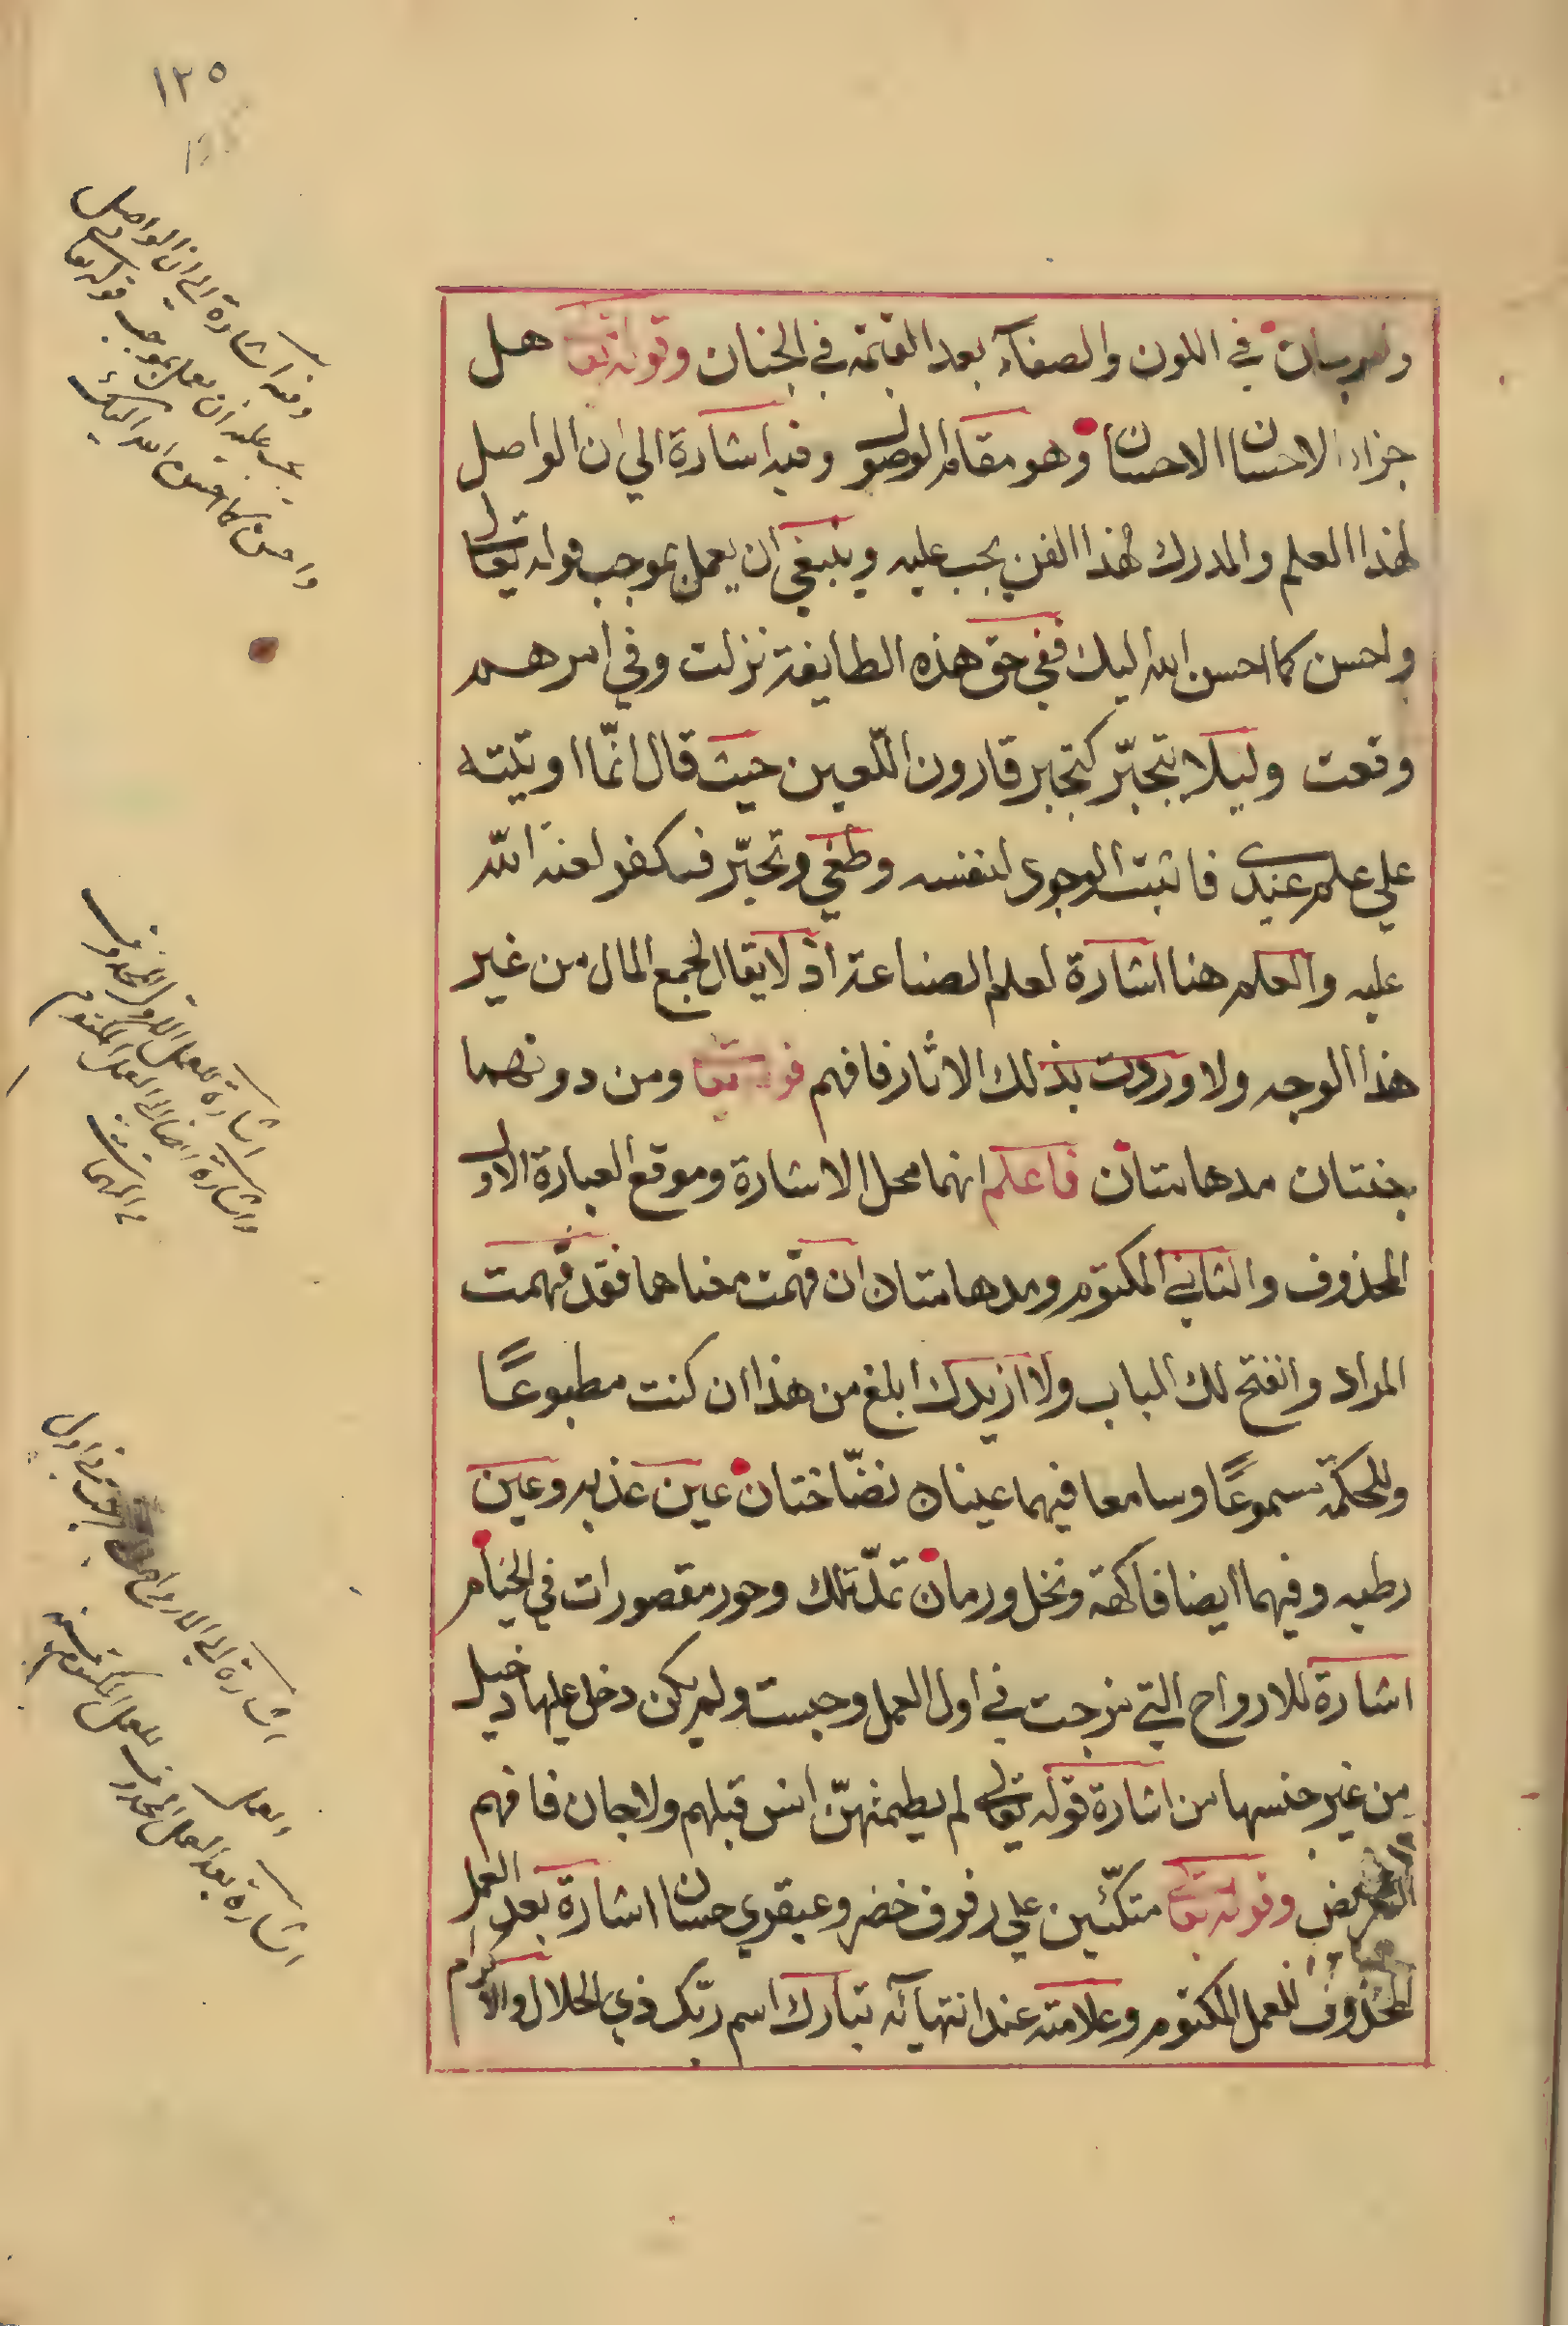 ١٢٥
في اللون والصفاء بعد القيمة في الجنان وقوله تعا هل
جزاء الاحسان الا الاحسان وهو مقام الوصول وفيه اشارة الي ان الواصل
لهذا العلم والمدرك لهذا الفن يجب عليه وينبغي ان يعمل بموجب قوله تعالى
واحسن كما احسن الله اليك ففي حق هذه الطايفة نزلت وفي امرهم
وقعت وليلا يتجبّر كتجبر قارون اللّعين حيث قال انّما اوتيته
علي علم عندي فاثبت الوجود لنفسه وطغي وتجبّر فكفر لعنة اللّه
عليه والعلم هنا اشارة لعلم الصناعة اذ لا يقال لجمع المال من غير
هذا الوجه ولا وردت بذلك الاثار فافهم قوله تعا ومن دونهما
جنتان مدهامتان فاعلم انهما محل الاشارة وموقع العبارة الاول
المحذوف والثاني المكتوم ومدهامتان ان فهمت معناهما فقد فهمت
المراد وانفتح لك الباب ولا ازيدك ابلغ من هذا ان كنت مطبوعًا
وللحكمة مسموعًا وسامعا فيهما عينان نضّاختان عين عذبه وعين
رطبه وفيهما ايضا فاكهة ونخل ورمان تمدّ تلك وحور مقصورات في الخيام
اشارة للارواح التي مزجت في اول العمل وحبست ولم يكن دخل عليها دخيل
من غير جنسها من اشارة قوله تعالى لم يطمثهنّ انس قبلهم ولا جان فافهم
التعريض وقوله تعا متكّئين علي رفرف خضر وعبقري حسان اشارة بعد العمل
المحذوف للعمل المكتوم وعلامته عند انتهائه تبارك اسم ربّك ذي الجلال والاكرام
وفيه اشارة الى ان الواصل
يجب عليه ان يعمل بموجب قوله تعا
واحسن كما احسن الله اليك
اشارة للعمل الاول المحذوف
واشارة ايضا الى العمل المكتوم
اشارة الى الارواح
العمل
اشارة بعد العمل المحذوف للعمل المكتوم